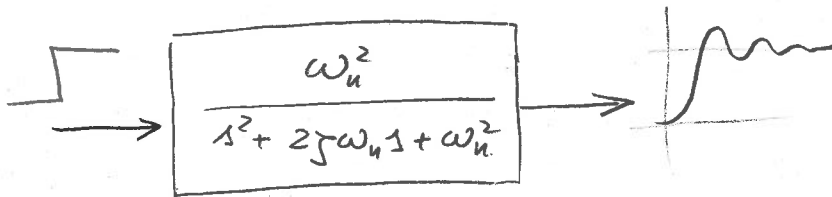 ωₙ²
s² + 2ζωₙs + ωₙ²